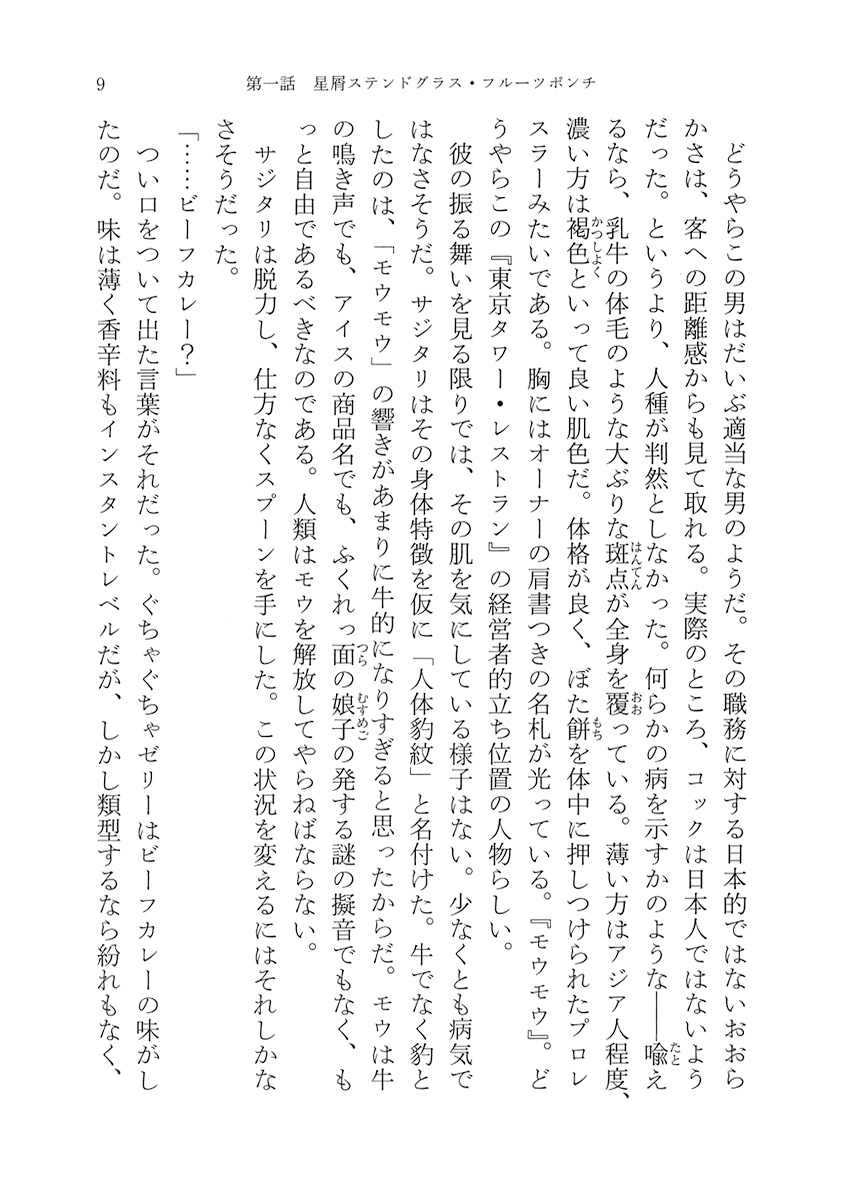 9
第一話　星屑ステンドグラス・フルーツポンチ
　どうやらこの男はだいぶ適当な男のようだ。その職務に対する日本的ではないおおら
かさは、客への距離感からも見て取れる。実際のところ、コックは日本人ではないよう
だった。というより、人種が判然としなかった。何らかの病を示すかのような――喩え
るなら、乳牛の体毛のような大ぶりな斑点が全身を覆っている。薄い方はアジア人程度、
濃い方は褐色といって良い肌色だ。体格が良く、ぼた餅を体中に押しつけられたプロレ
スラーみたいである。胸にはオーナーの肩書つきの名札が光っている。『モウモウ』。ど
うやらこの『東京タワー・レストラン』の経営者的立ち位置の人物らしい。
　彼の振る舞いを見る限りでは、その肌を気にしている様子はない。少なくとも病気で
はなさそうだ。サジタリはその身体特徴を仮に「人体豹紋」と名付けた。牛でなく豹と
したのは、「モウモウ」の響きがあまりに牛的になりすぎると思ったからだ。モウは牛
の鳴き声でも、アイスの商品名でも、ふくれっ面の娘子の発する謎の擬音でもなく、も
っと自由であるべきなのである。人類はモウを解放してやらねばならない。
　サジタリは脱力し、仕方なくスプーンを手にした。この状況を変えるにはそれしかな
さそうだった。
「……ビーフカレー？」
　つい口をついて出た言葉がそれだった。ぐちゃぐちゃゼリーはビーフカレーの味がし
たのだ。味は薄く香辛料もインスタントレベルだが、しかし類型するなら紛れもなく、